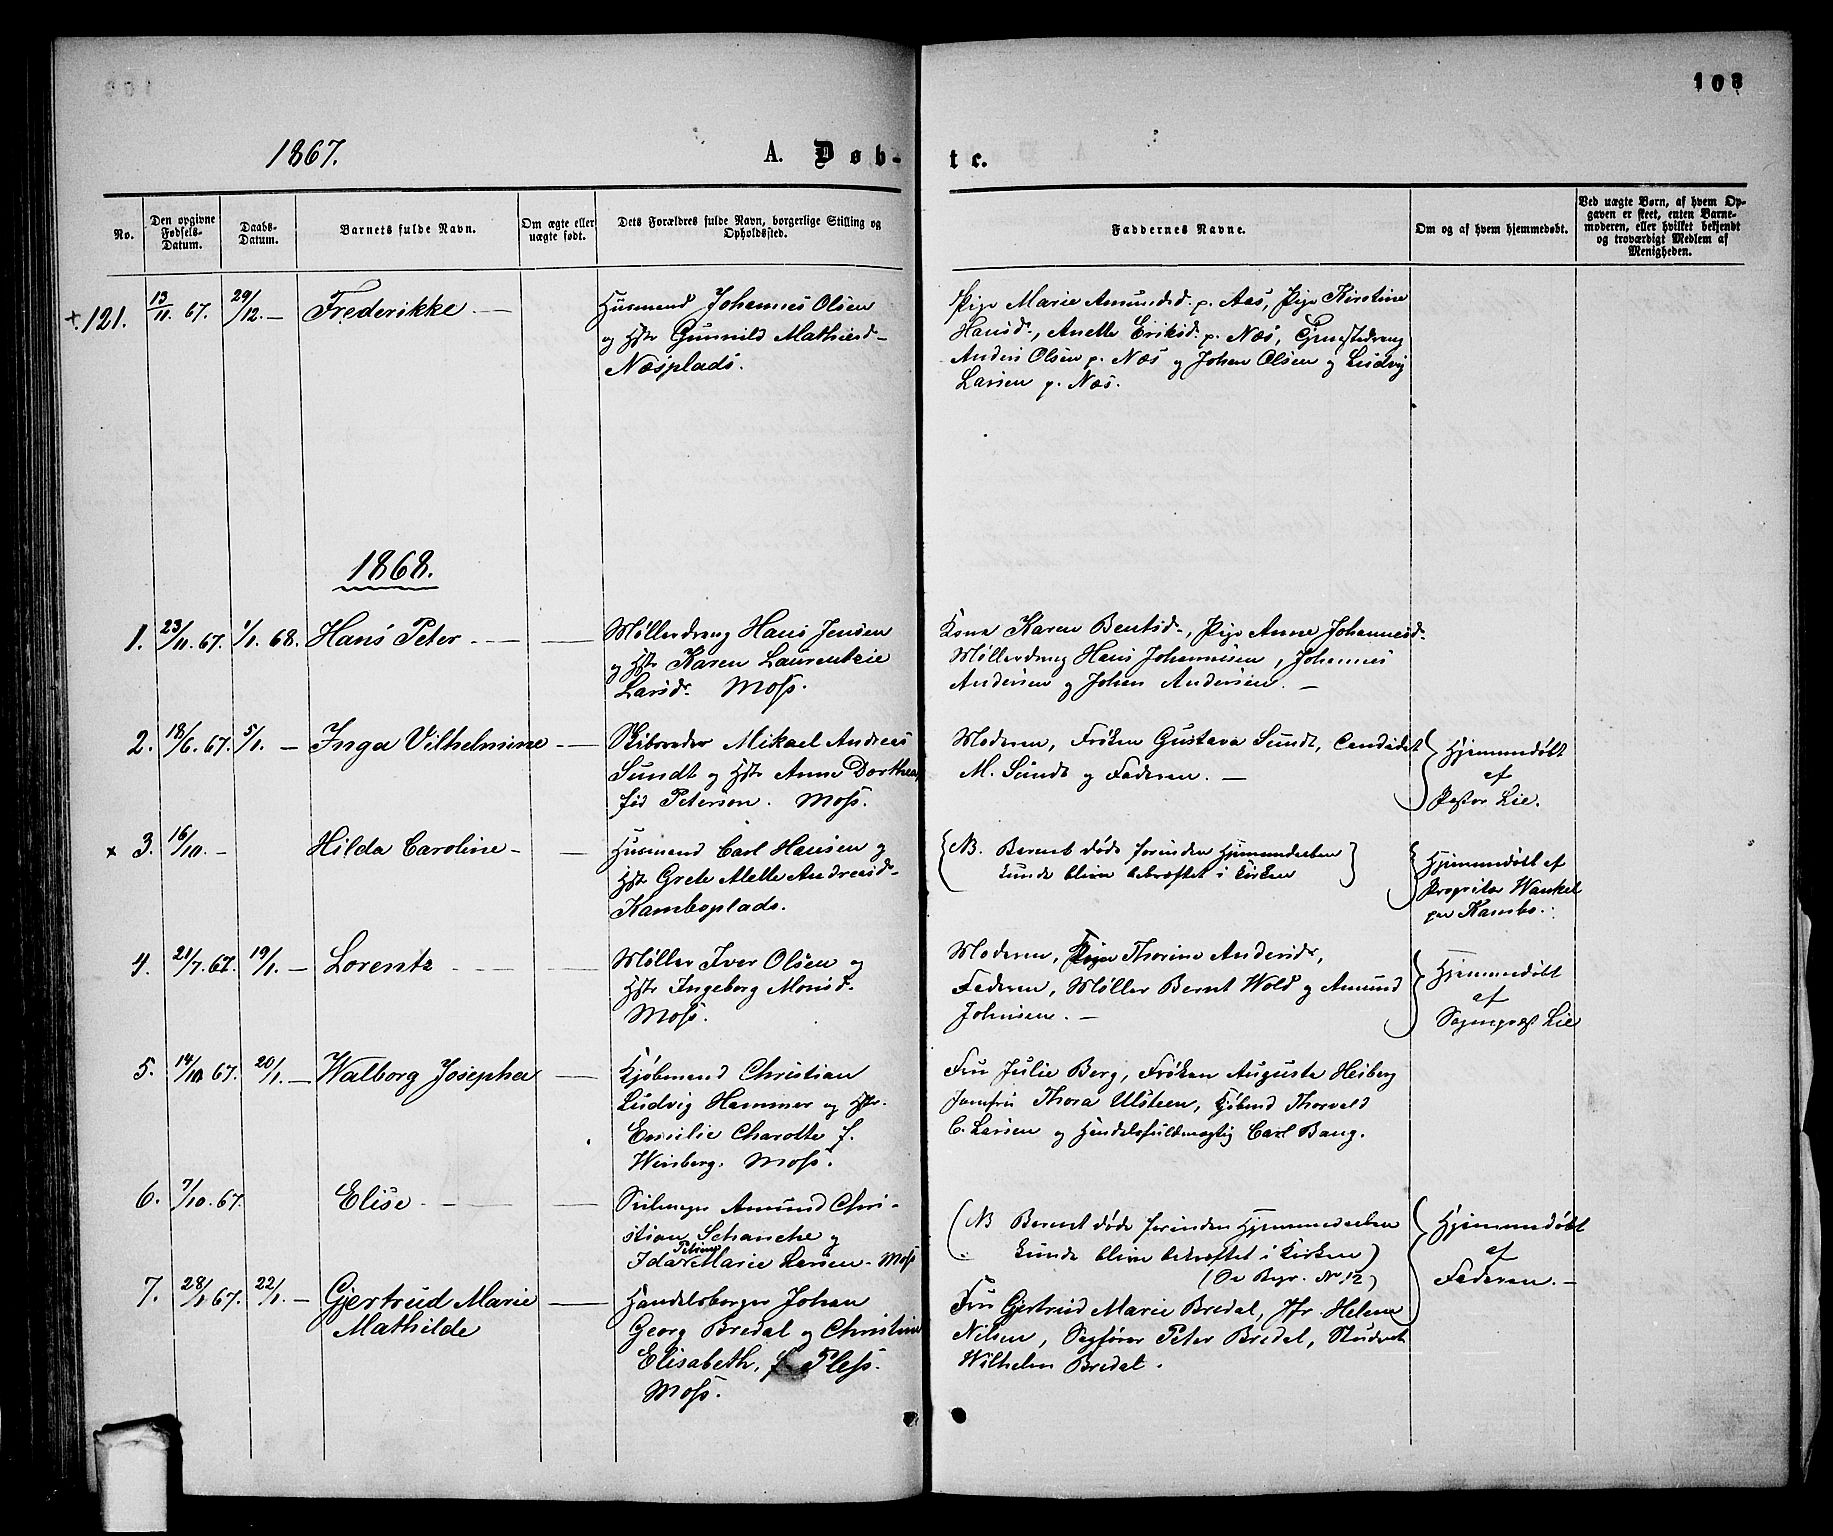 103
1867.
A. Døb-
te.
No.
Den opgivne Fødsels-Datum.
Daabs-Datum.
Barnets fulde Navn.
Om ægte eller uægte født.
Dets Forældres fulde Navn, borgerlige Stilling og Opholdssted.
Faddernes Navne.
Om og af hvem hjemmedøbt.
Ved uægte Børn, af hvem Opgaven er skeet, enten Barnemoderen, eller hvilket bekjendt og troværdigt Medlem af Menigheden.
+ 121. 13/11. 67. 29/12. – Frederikke —
Husmand Johannes Olsen
og Hstr Gunnild Mathisd–
Næsplads.
Pige Marie Amundsd. p. Aas, Pige Kirstine
Hansd., Anette Eriksd. p. Næs,
Anders Olsen p. Næs og Johan Olsen og Ludvig
Larsen p. Næs.
1868.
1. 23/11. 67. 1/1. 68. Hans Peter — —
Møllerdreng Hans Jensen
og Hstr Karen Laurentzie
Larsd. Moss.
Kone Karen Bentsd., Pige Anne Johannesd.
Møllerdreng Hans Johannesen, Johannes
Andersen og Johan Andersen. —
2. 18/6. 67. 5/1. – Inga Vilhelmine —
Skibsreder Mikael Andreas
Sundt og Hstr Anne Dorthea
fød Peterson. Moss.
Moderen, Frøken Gustava Sundt, Candidat
M. Sundt og Faderen. —
Hjemmedøbt
af
Pastor Lie.
× 3. 16/10. – Hilda Caroline – —
Husmand Carl Hansen og
Hstr Grete Mette Andreasd–
Kamboplads.
NB. Barnet døde forinden Hjemmedaaben
kunde blive bekræftet i Kirken
Hjemmedøbt af
Propritær Wankel
paa Kambo.
4. 21/7. 67. 19/1. – Lorentz — —
Møller Iver Olsen og
Hstr Ingeborg Monsd.
Moss.
Moderen, Pige Thorine Andersd.,
Faderen, Møller Bernt Wold og Amund
Johnsen. —
Hjemmedøbt
af
Sognepræst Lie
5. 14/10. 67. 20/1. – Walborg Josepha —
Kjøbmand Christian
Ludvig Hammer og Hstr.
Emilie Charotte f.
Winsberg. Moss.
Fru Julie Berg, Frøken Augusta Heiberg
Jomfru Thora Ulsteen, Kjøbmd Thorvald
C. Larsen og Handelsfuldmægtig Carl Bang.
6. 7/10. 67. Elise — —
Seilmager Amund Chri-
stian Schanche og
Petrine
Ida Marie Larsen – Moss
(NB Barnet døde forinden Hjemmedaaben
kunde blive bekræftet i Kirken)
Hjemmedøbt
af
Faderen. –
7. 28/1. 67. 22/1. – Gjertrud Marie
Mathilde
Handelsborger Johan
Georg Bredal og Christine
Elisabeth, f. Pless.
Moss.
Fru Gjertrud Marie Bredal, Jfr. Helene
Nilsen, Sagfører Peter Bredal, Student
Wilhelm Bredal.